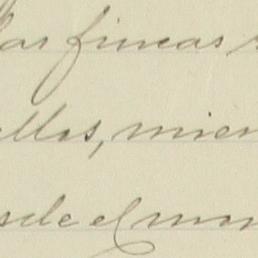 las fincas
ellas, mien
sde el mom